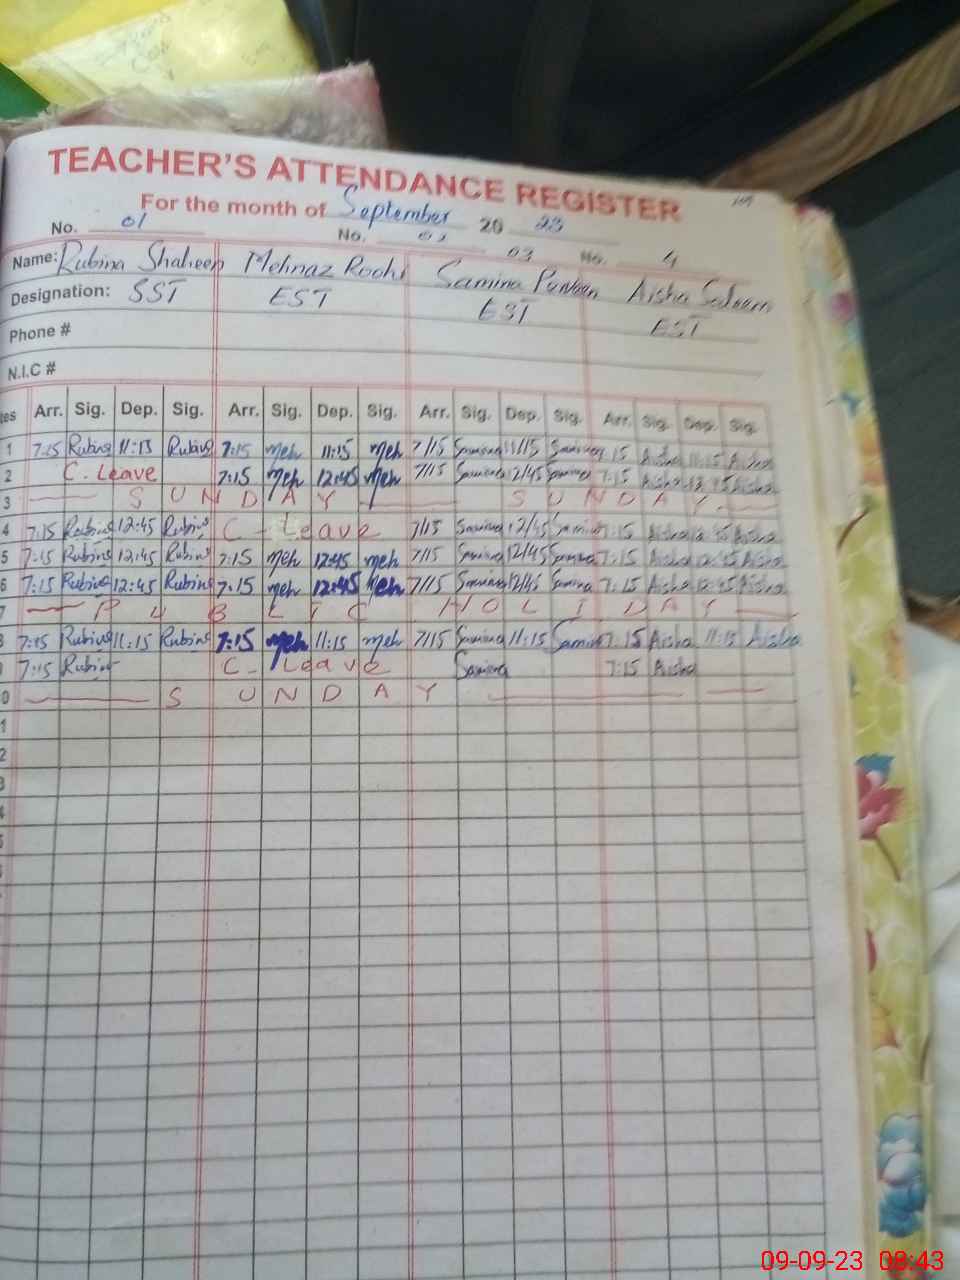 TEACHER'S ATTENDANCE REGISTER
For the month of September 20 23
No. 01 No. 02 03 No. 4
Name: Rubina Shaheen Mehnaz Roohi Samina Parveen Aisha Saleem
Designation: SST EST EST EST
Phone #
N.I.C #
tes Arr. Sig. Dep. Sig. Arr. Sig. Dep. Sig. Arr. Sig. Dep. Sig. Arr. Sig. Dep. Sig.
1 7:15 Rubina 11:15 Rubina 7:15 meh 11:15 meh 7/15 Samina 11/15 Samina 7:15 Aisha 11:15 Aisha
2 C. Leave 7:15 meh 12:45 meh 7/15 Samina 12/45 Samina 7:15 Aisha 12:45 Aisha
3 SUNDAY SUNDAY
4 7:15 Rubina 12:45 Rubina C - Leave 7/15 Samina 12/45 Samina 7:15 Aisha 12:45 Aisha
5 7:15 Rubina 12:45 Rubina 7:15 meh 12:45 meh 7/15 Samina 12/45 Samina 7:15 Aisha 12:45 Aisha
6 7:15 Rubina 12:45 Rubina 7:15 meh 12:45 meh 7/15 Samina 12/45 Samina 7:15 Aisha 12:45 Aisha
7 PUBLIC HOLIDAY
8 7:15 Rubina 11:15 Rubina 7:15 meh 11:15 meh 7/15 Samina 11:15 Samina 7:15 Aisha 11:15 Aisha
9 7:15 Rubina C - Leave Samina 7:15 Aisha
0 SUNDAY
1
2
3
4
5
6
09-09-23 08:43